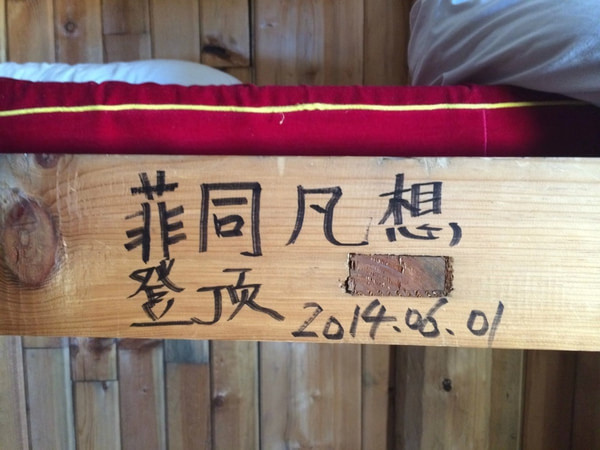 菲同凡想,
登顶 2014.06.01